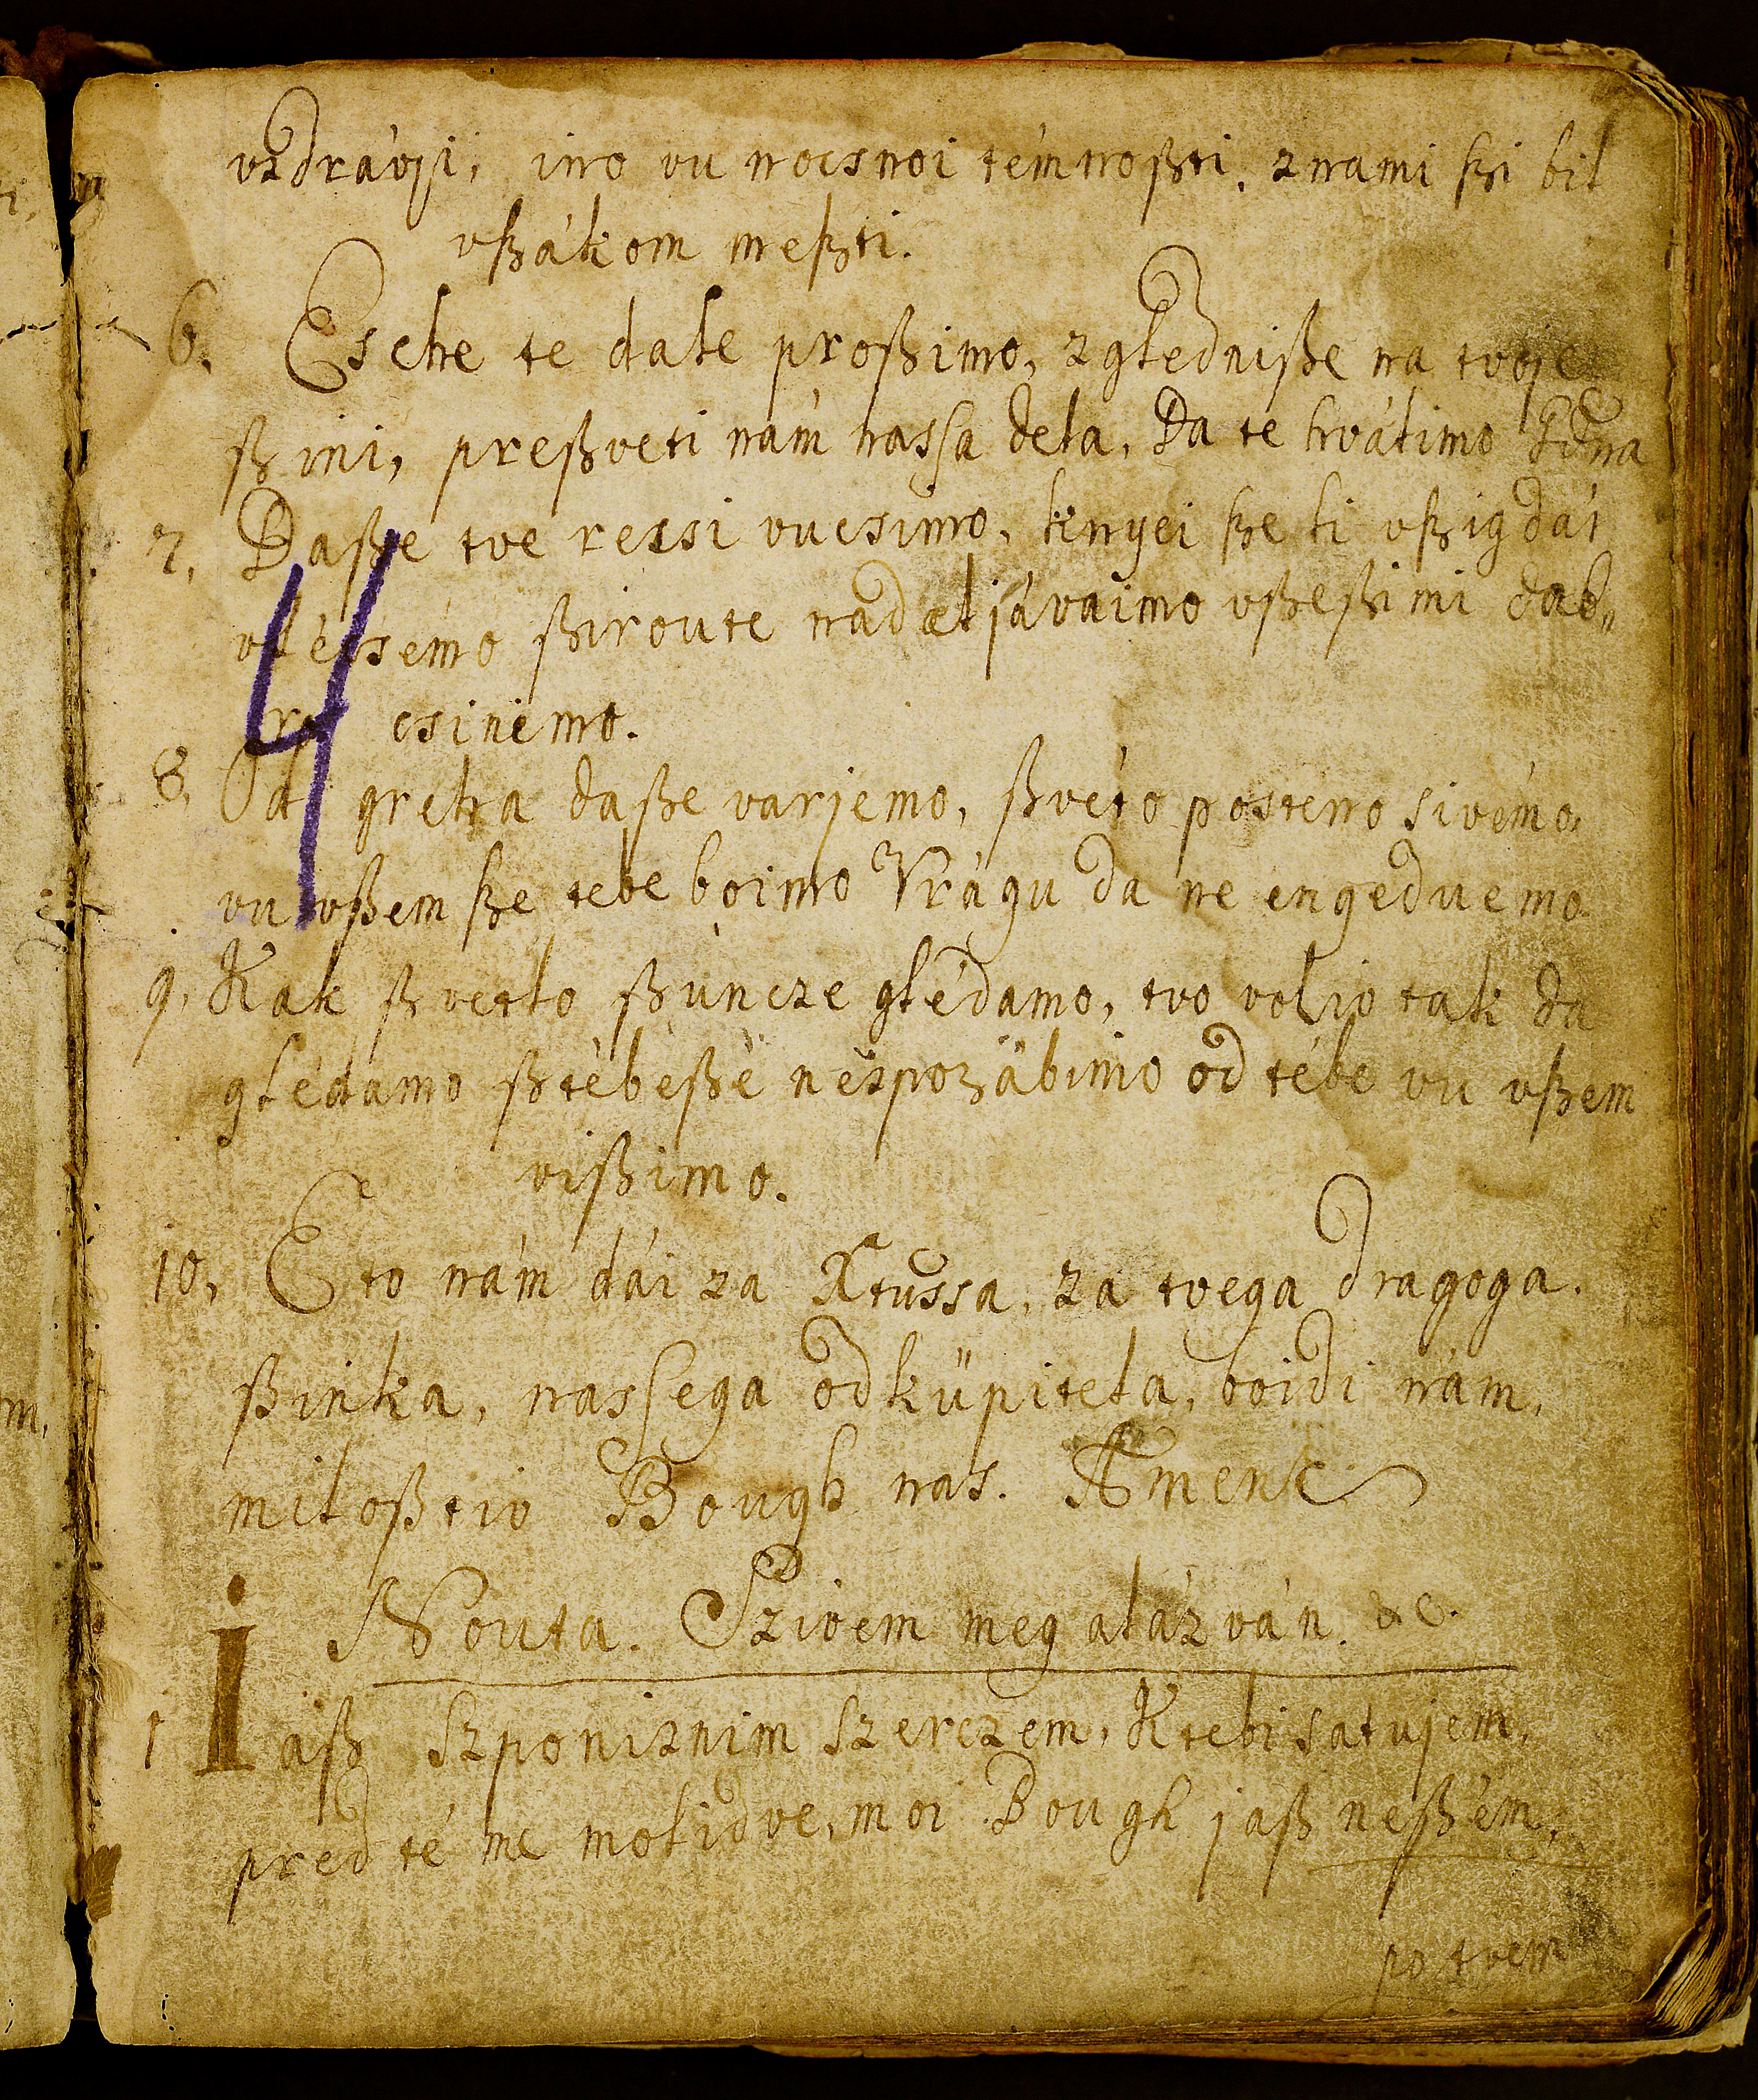 vzdrávji, ino vu nocsnoi témnoßti, znami ßi bil
vßákom meßti.
6. Esche te dale proßimo, zgledniße na tvoje
ßini, preßveti nám nassa dela, Da te hválimo
7. Daße tve ressi vucsimo, knyei ße ti vßigdár
ßiroute nadeljávaimo vßeßimi dob„
ro csinémo.
8. Od greha daße varjemo, ßvéto posteno sivémo,
vu vßem ße tebe boimo Vrágu da ne engeduemo.
9. Kak ßvetlo ßúncze glédamo, tvo voljo tak da
glédamo ßtébeße nespozábimo od tébe vu vßem
vißimo.
10. Eto nám dái za Xtussa, za tvega dragoga.
ßinka, nassega odküpitela, boidi nám,
miloßtiv Bough nas. Amen
Nouta. Szivem meg alázván. &c.
1 Iaß szponiznim szerczem, Ktebi salujem,
pred té me molidve, moi Bough jaß neßém,
po tvem
4